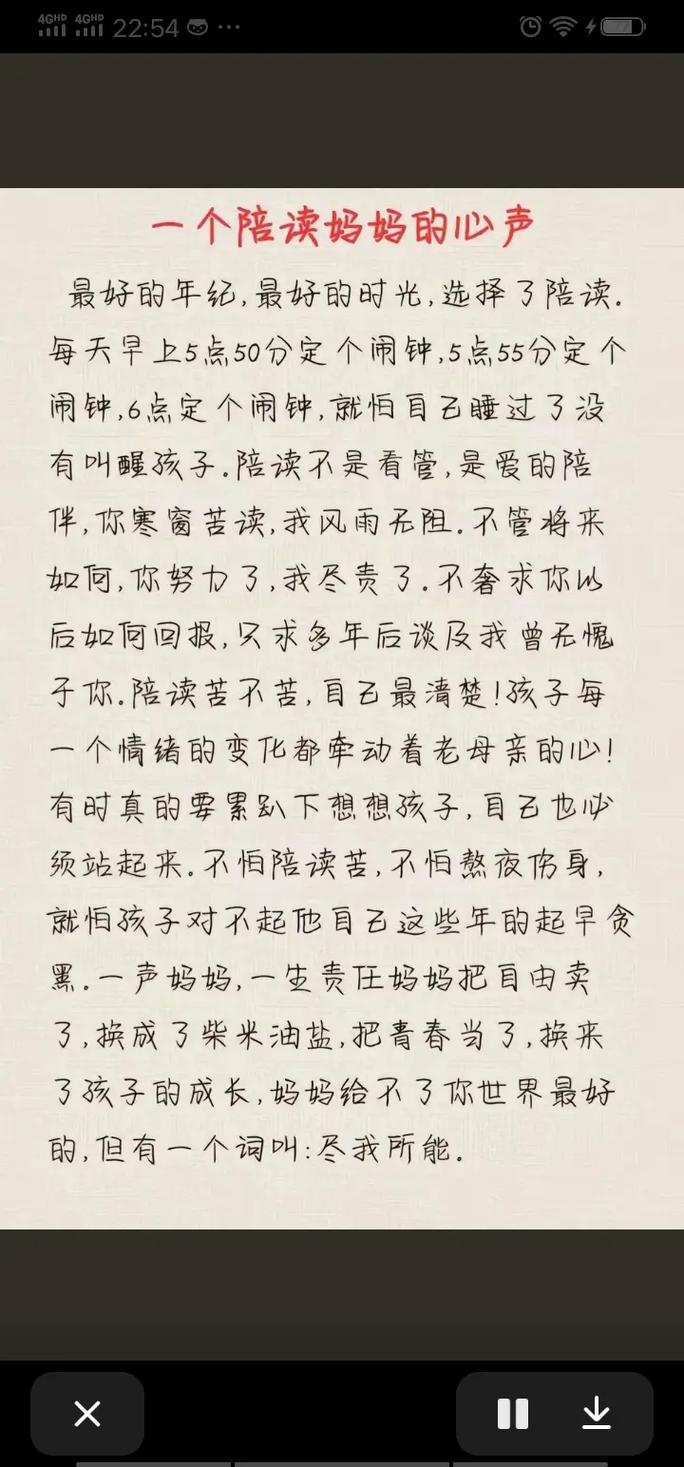 4GHD 4GHD 22:54 ···
一个陪读妈妈的心声
最好的年纪,最好的时光,选择了陪读.
每天早上5点50分定个闹钟,5点55分定个
闹钟,6点定个闹钟,就怕自己睡过了没
有叫醒孩子.陪读不是看管,是爱的陪
伴,你寒窗苦读,我风雨无阻.不管将来
如何,你努力了,我尽责了.不奢求你以
后如何回报,只求多年后谈及我曾无愧
于你.陪读苦不苦,自己最清楚!孩子每
一个情绪的变化都牵动着老母亲的心!
有时真的要累趴下想想孩子,自己也必
须站起来.不怕陪读苦,不怕熬夜伤身,
就怕孩子对不起他自己这些年的起早贪
黑.一声妈妈,一生责任妈妈把自由卖
了,换成了柴米油盐,把青春当了,换来
了孩子的成长,妈妈给不了你世界最好
的,但有一个词叫:尽我所能.